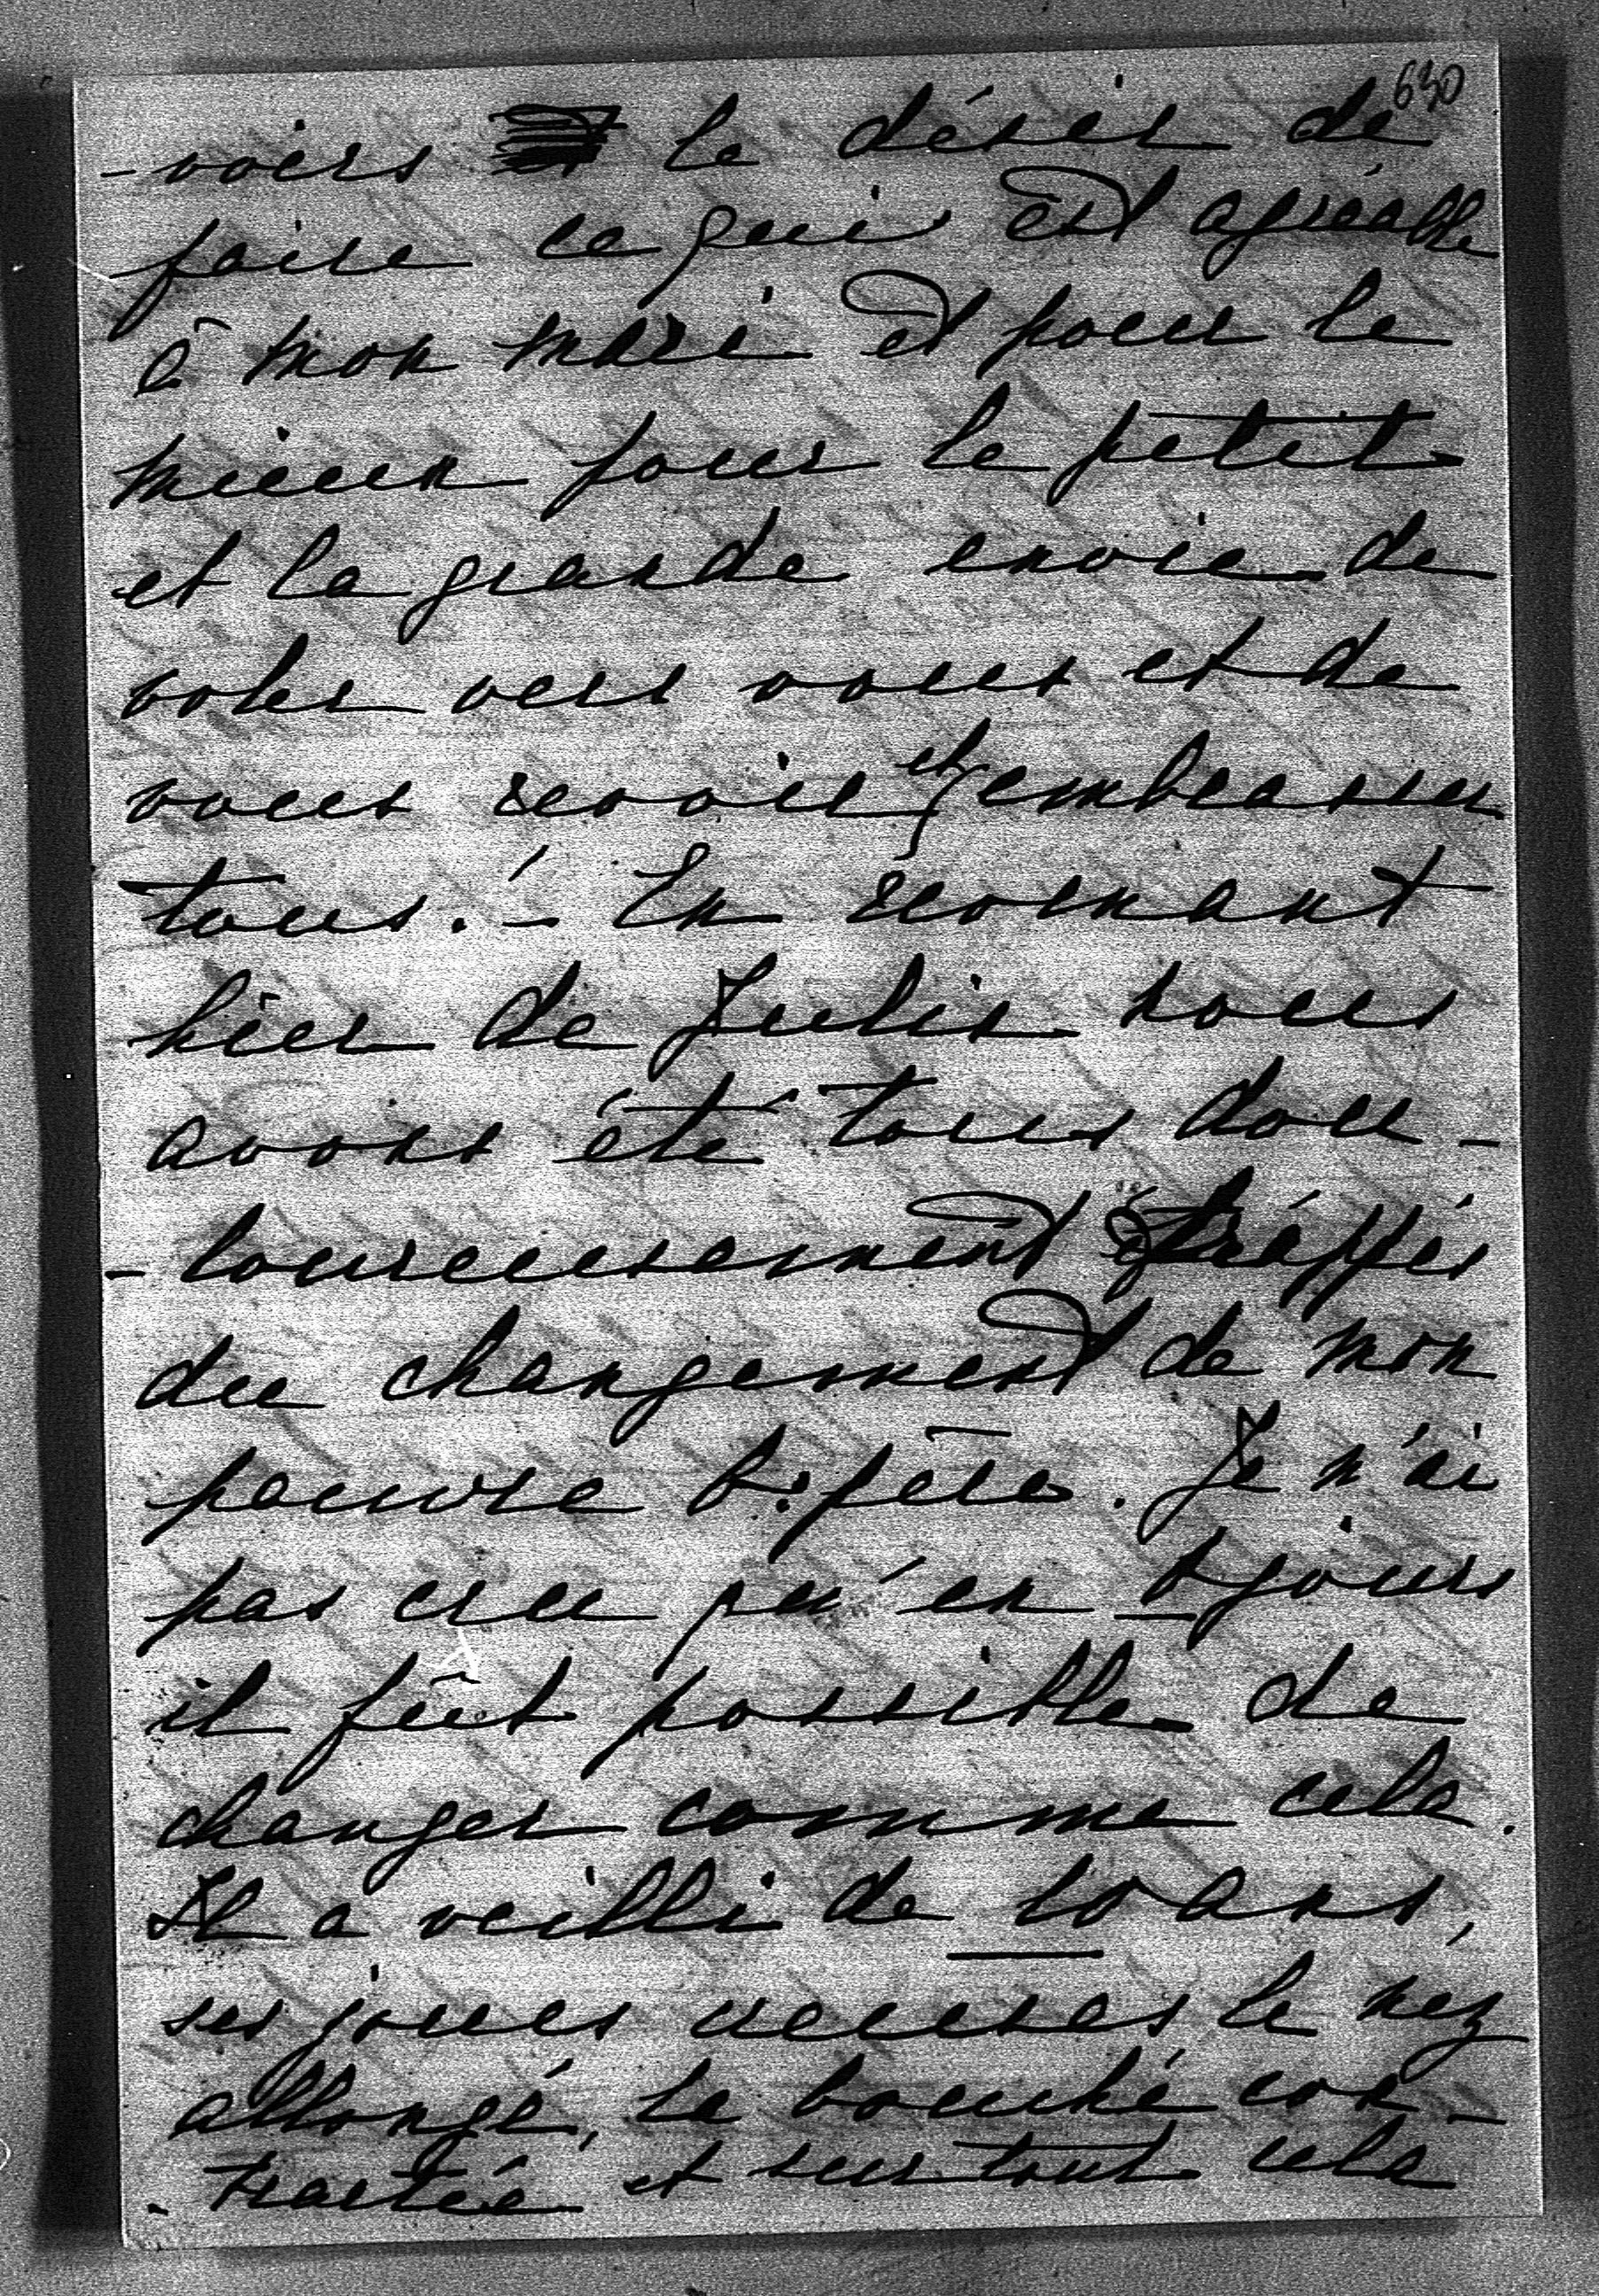 630
-voirs le désir de
faire ce qui est agréable
à mon mari et pour le
mieux pour le petit
et la grande envie de
voler vers vous et de
vous revoir et embrasser
tous. - En revenant
hier de Jülich nous
avons été tous dou-
-loureusement frappés
du changement de mon
pauvre b. père. Je n'ai
pas cru qu'en 8 jours
il fût possible de
changer comme cela.
Il a veilli de 10 ans,
ses joues creuses le nez
allongé, la bouche con-
-tractée et surtout cela